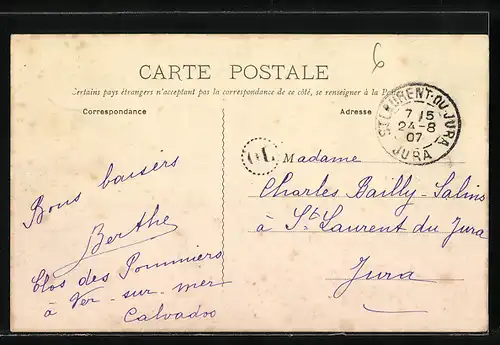 6
CARTE POSTALE
Certains pays étrangers n'acceptant pas la correspondance de ce côté, se renseigner à la
Correspondance
Adresse
ST LAURENT-DU-JURA
7 15
24-8
07
JURA
OL
Bons baisers
Berthe
Clos des Pommiers
à Ver-sur-mer
Calvados
Madame
Charles Bailly-Salins
à St Laurent du Jura
Jura